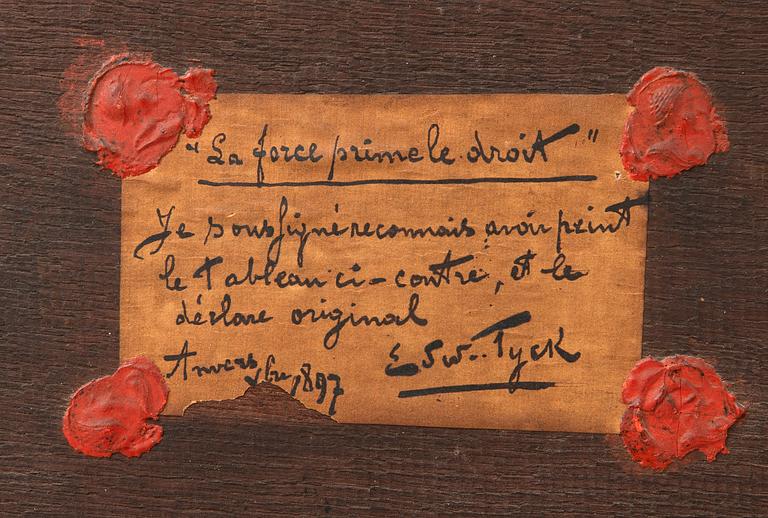 "La force prime le droit"
Je soussigné reconnais avoir peint
le tableau ci-contre, et le
déclare original
Anvers 1897
Edw. Tyck